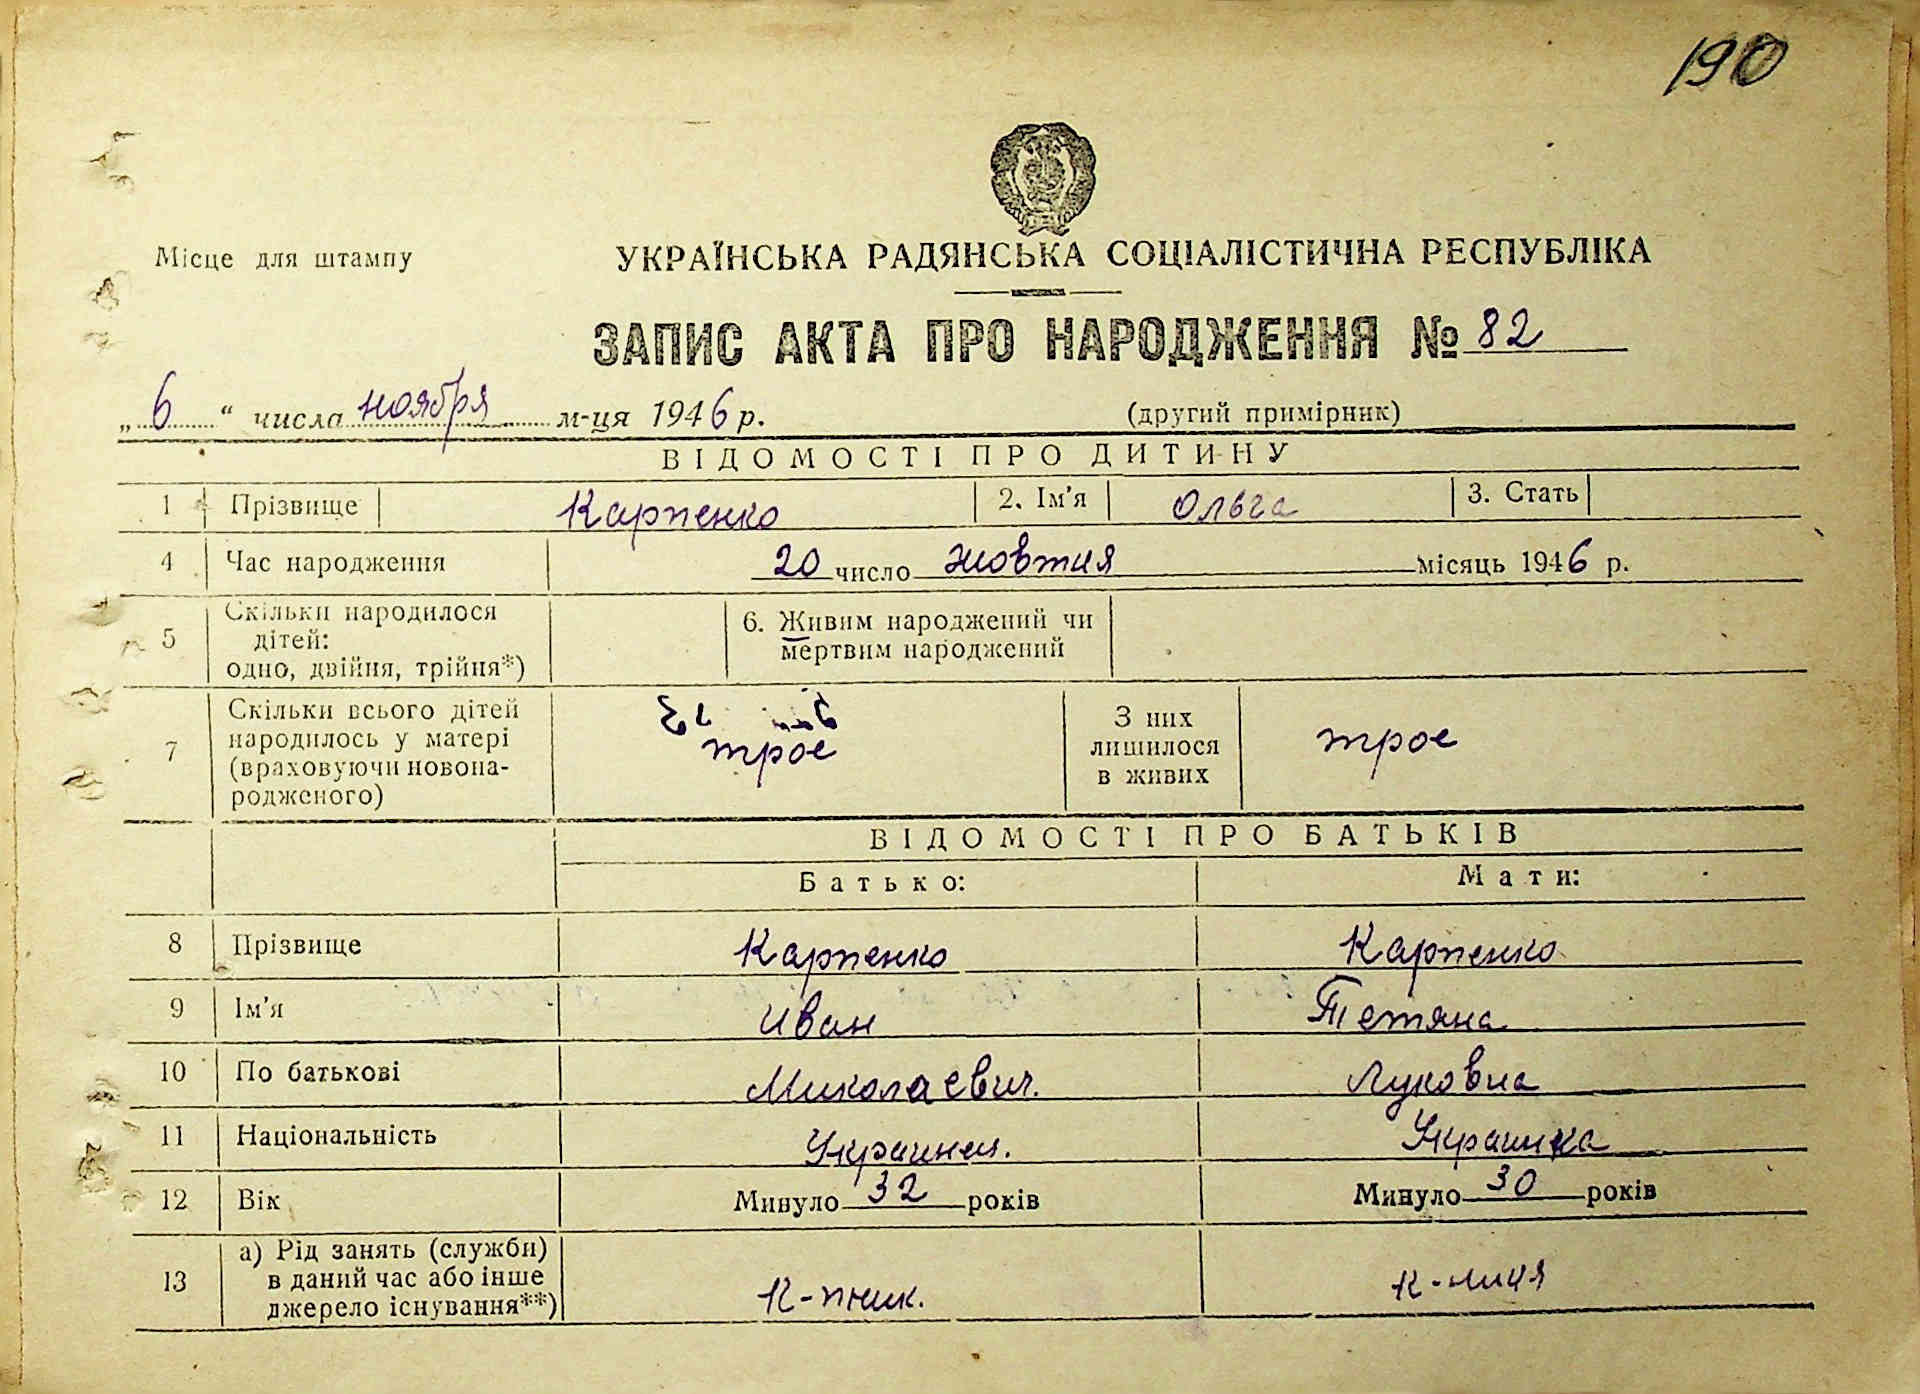 190
Місце для штампу
УКРАЇНСЬКА РАДЯНСЬКА СОЦІАЛІСТИЧНА РЕСПУБЛІКА
ЗАПИС АКТА ПРО НАРОДЖЕННЯ № 82
„ 6 “ числа ноября м-ця 1946 р. (другий примірник)
ВІДОМОСТІ ПРО ДИТИНУ
1 Прізвище Карпенко 2. Ім'я Ольга 3. Стать
4 Час народження 20 число жовтня місяць 1946 р.
5 Скільки народилося
дітей:
одно, двійня, трійня*)
6. Живим народжений чи
мертвим народжений
7 Скільки всього дітей
народилось у матері
(враховуючи новона-
родженого)
трое
З них
лишилося
в живих
трое
ВІДОМОСТІ ПРО БАТЬКІВ
Батько: Мати:
8 Прізвище Карпенко Карпенко
9 Ім'я Иван Тетяна
10 По батькові Миколаевич. Луковна
11 Національність Украинец. Украинка
12 Вік Минуло 32 років Минуло 30 років
13 а) Рід занять (служби)
в даний час або інше
джерело існування**)
К-пник. к-ниця